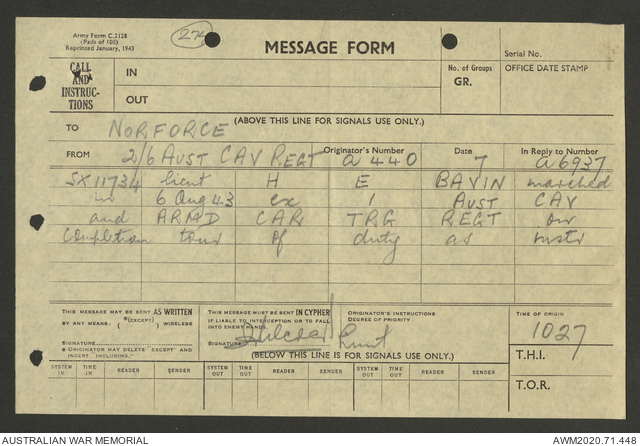 Army Form C.2128
(Pads of 100)
Reprinted January, 1943
274
MESSAGE FORM
Serial No.
CALL AND INSTRUC-TIONS
IN
OUT
No. of Groups
GR.
OFFICE DATE STAMP
(ABOVE THIS LINE FOR SIGNALS USE ONLY.)
TO NORFORCE
FROM 2/6 AUST CAV REGT Originator's Number a 440 Date 7 In Reply to Number a6937
SX11734 Lieut H E BAVIN marched
in 6 Aug 43 ex 1 AUST CAV
and ARMD CAR TRG REGT on
completion tour of duty as instr
THIS MESSAGE MAY BE SENT AS WRITTEN
BY ANY MEANS: (*(EXCEPT) ) WIRELESS
SIGNATURE
* ORIGINATOR MAY DELETE "EXCEPT" AND INSERT "INCLUDING."
THIS MESSAGE MUST BE SENT IN CYPHER
IF LIABLE TO INTERCEPTION OR TO FALL INTO ENEMY HANDS.
SIGNATURE Lieut
(BELOW THIS LINE IS FOR SIGNALS USE ONLY.)
ORIGINATOR'S INSTRUCTIONS
DEGREE OF PRIORITY
TIME OF ORIGIN
1027
T.H.I.
T.O.R.
SYSTEM IN TIME IN READER SENDER SYSTEM OUT TIME OUT READER SENDER SYSTEM OUT TIME OUT READER SENDER
AUSTRALIAN WAR MEMORIAL
AWM2020.71.448